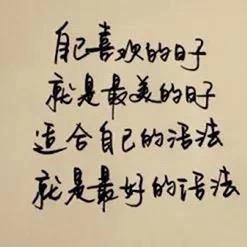 自己喜欢的日子
就是最美的日子
适合自己的活法
就是最好的活法